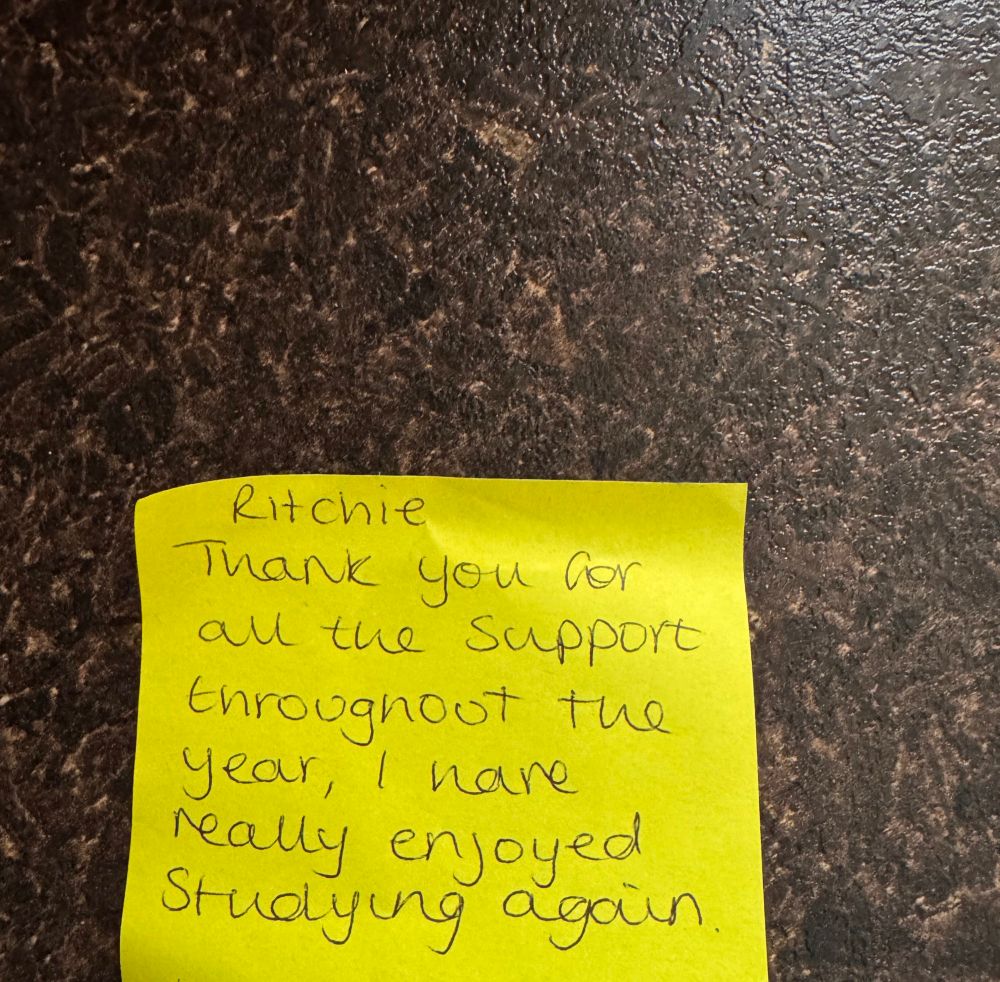 Ritchie
Thank you for
all the support
throughout the
year, I have
really enjoyed
Studying again.